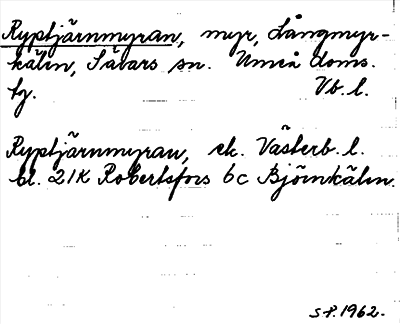 Ryptjärnmyran, myr, Långmyr-
kälen, Sävars sn. Umeå doms.
fg. Vb. l.
Ryptjärnmyran, ek. Västerb. l.
bl. 21K Robertsfors 6c Björnkälen.
S.P. 1962.